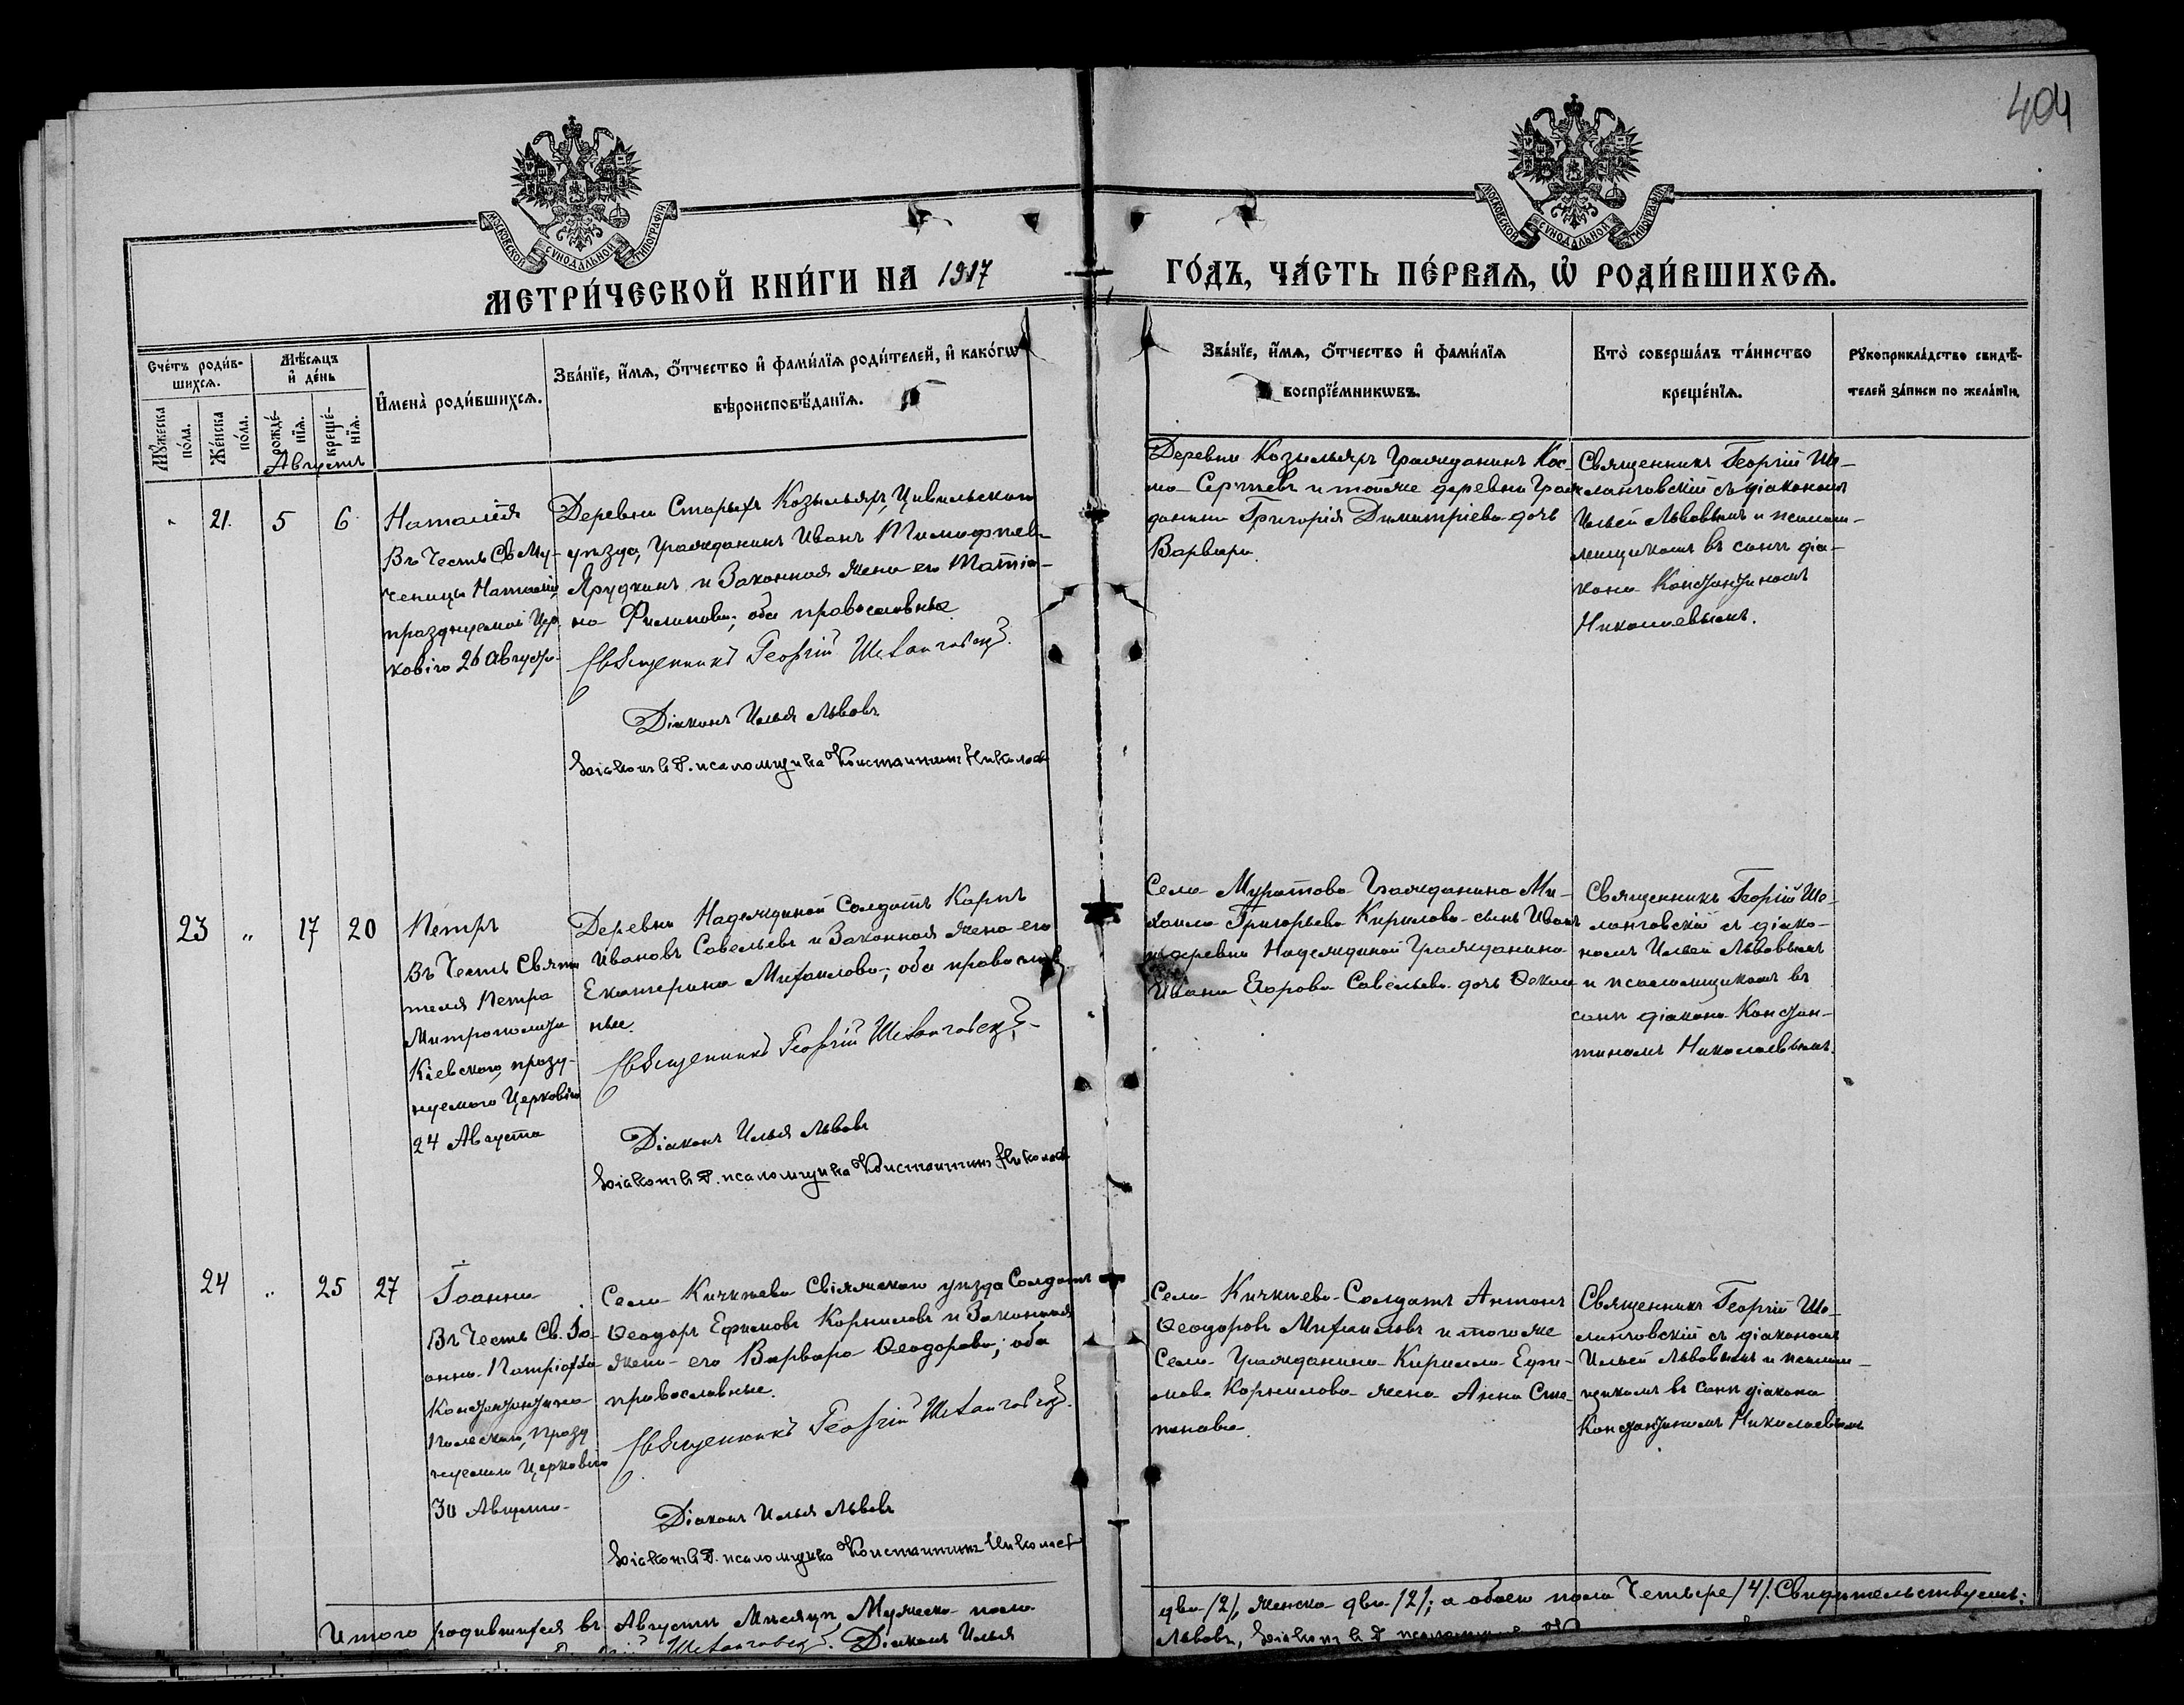 404
МОСКОВСКОЙ СУНОДАЛЬНОЙ ТИПОГРАФІИ
МОСКОВСКОЙ СУНОДАЛЬНОЙ ТИПОГРАФІИ
МЕТРИ́ЧЕСКОЙ КНИ́ГИ НА 1917
ГО́ДЪ, ЧА́СТЬ ПЕ́РВАѦ, Ѡ҆ РОДИ́ВШИХСѦ.
Сче́тъ роди́в-
шихсѧ.
Мꙋ́жеска
по́ла.
Же́нска
по́ла.
Мѣ́сѧцъ
и҆ де́нь
рожде́-
нїѧ.
креще́-
нїѧ.
И҆мена̀ роди́вшихсѧ.
Зва́нїе, и҆́мѧ, ѻ҆́тчество и҆ фами́лїѧ роди́телей, и҆ како́гѡ
вѣроисповѣ́данїѧ.
Зва́нїе, и҆́мѧ, ѻ҆́тчество и҆ фами́лїѧ
воспрїе́мникѡвъ.
Кто̀ соверша́лъ та́инство
креще́нїѧ.
Рꙋкоприкла́дство свидѣ́-
телей за́писи по жела́нїю.
Августъ
" 21. 5 6
Наталія
Въ Честь Св. Му-
ченицы Наталіи,
празднуемой Цер-
ковію 26 Августа
Деревни Старыхъ Козыльяръ, Цивильскаго
уѣзда, Гражданинъ Иванъ Тимофѣевъ
Ярудкинъ и Законная жена его Татіа-
на Филипова; оба православные
Священникъ Георгій Шеланговскій.
Діаконъ Илья Львовъ
Діаконъ в д. псаломщика Константинъ Николаев
Деревни Козыльяръ Гражданинъ Кос-
ма Сергѣевъ и тойже деревни Граж-
данина Григорія Димитріева дочь
Варвара.
Священникъ Георгій Ше-
ланговскій съ діакономъ
Ильей Львовымъ и псалом-
щикомъ въ санѣ діа-
кона Константиномъ
Николаевымъ.
23 " 17 20
Петръ
Въ Честь Святи-
теля Петра
Митрополита
Кіевскаго, празд-
нуемаго Церковію
24 Августа
Деревни Надеждиной Солдатъ Карпъ
Ивановъ Савельевъ и Законная жена его
Екатерина Михаилова; оба православ-
ные.
Священникъ Георгій Шеланговскій.
Діаконъ Илья Львовъ
Діаконъ в д. псаломщика Константинъ Николаев
Села Муратова Гражданина Ми-
хаила Григорьева Кирилова сынъ Иванъ
и деревни Надеждиной Гражданина
Ивана Егорова Савельева дочь Ѳекла
Священникъ Георгій Ше-
ланговскій съ діако-
номъ Ильей Львовымъ
и псаломщикомъ въ
санѣ діакона Констан-
тиномъ Николаевымъ.
24 " 25 27
Іоаннъ
Въ Честь Св. Іо-
анна Патріарха
Константино-
польскаго, празд-
нуемаго Церковію
30 Августа
Села Кичкѣева Свіяжскаго уѣзда Солдатъ
Ѳеодоръ Ефимовъ Корниловъ и Законная
жена его Варвара Ѳеодорова; оба
православные.
Священникъ Георгій Шеланговскій.
Діаконъ Илья Львовъ
Діаконъ в д. псаломщика Константинъ Николаев
Села Кичкѣева Солдатъ Антонъ
Ѳеодоровъ Михаиловъ и тогоже
Села Гражданина Кирилла Ефи-
мова Корнилова жена Анна Сте-
панова.
Священникъ Георгій Ше-
ланговскій съ діакономъ
Ильей Львовымъ и псалом-
щикомъ въ санѣ діакона
Константиномъ Николаевымъ
Итого родившихся въ Августѣ Мѣсяцѣ Мужеска пола
два /2/, женска два /2/; а обоего пола Четыре /4/. Свидѣтельствуемъ:
Шеланговскій. Діаконъ Илья
Львовъ, Діаконъ в д псаломщика